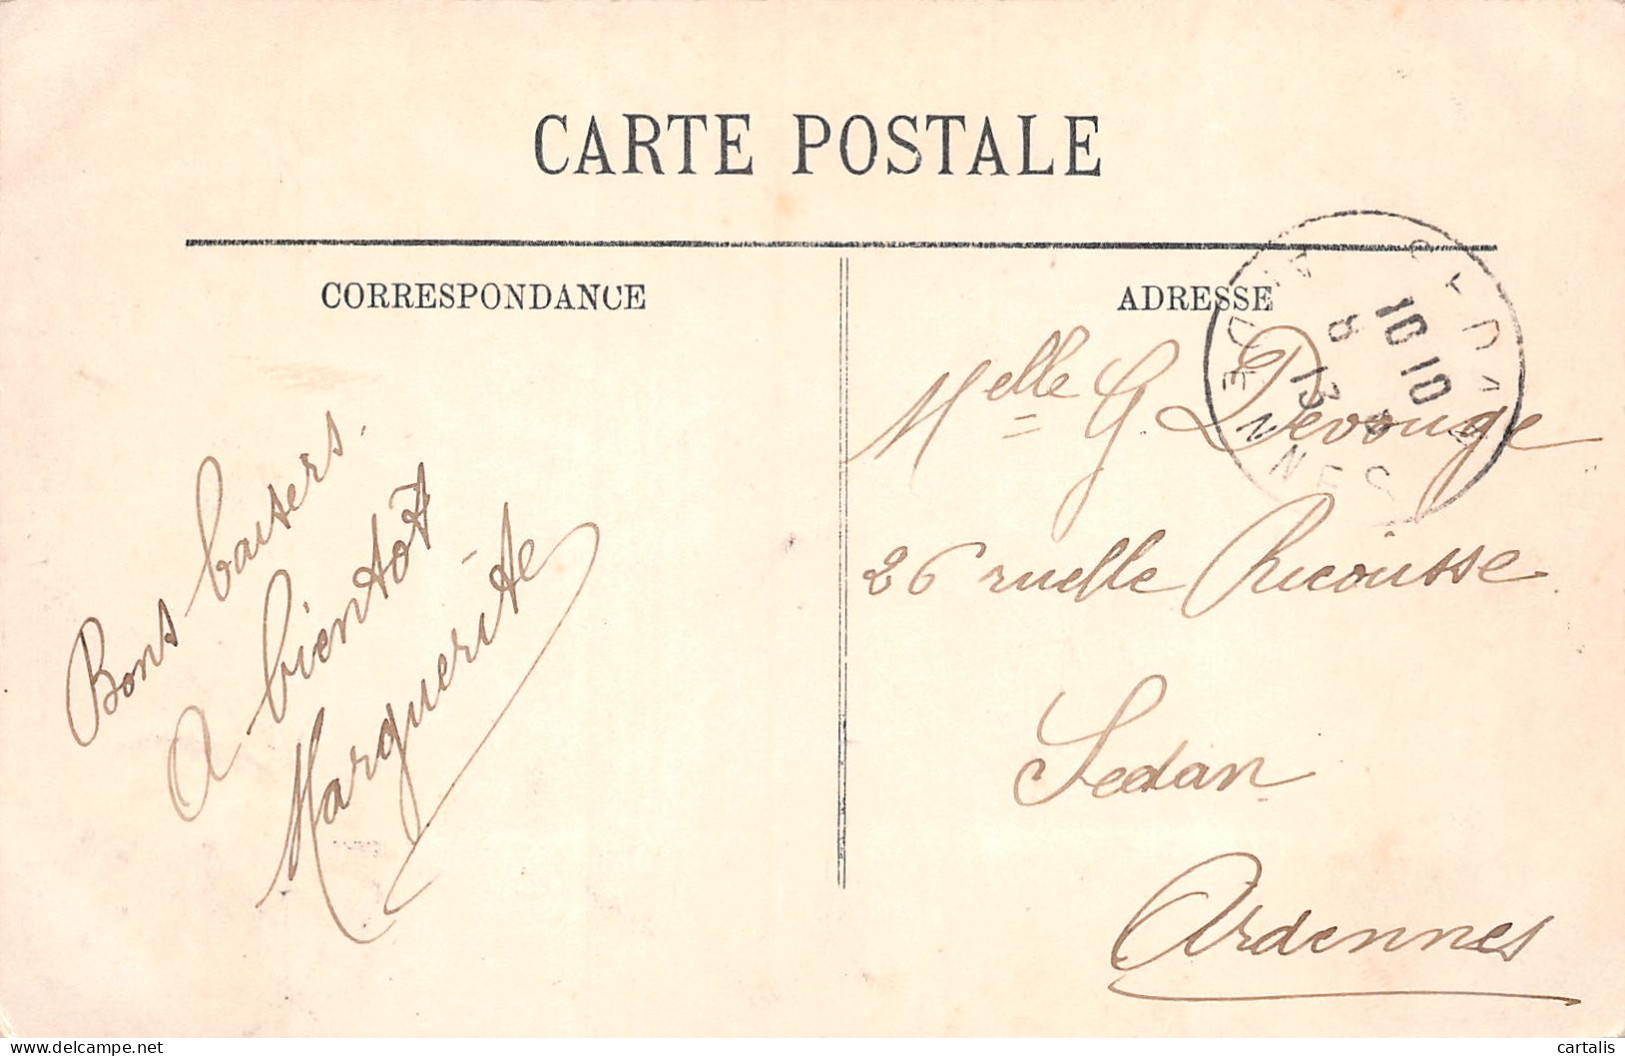 CARTE POSTALE
CORRESPONDANCE
ADRESSE
Bons baisers.
A bientôt
Marguerite
Melle G. Devouge
26 ruelle Ricousse
Sedan
Ardennes
10 10
6
13
delcampe.net
cartalis